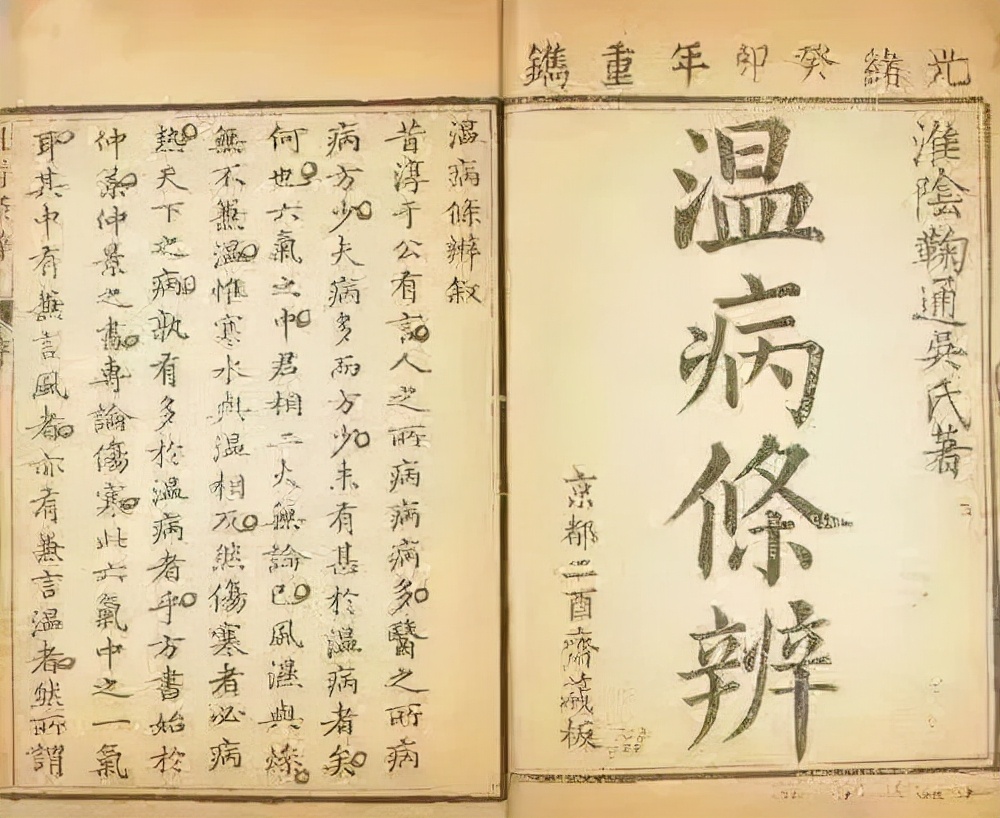 光緒癸卯年重鐫
淮陰鞠通吳氏著
温病條辨
京都二酉齋藏板
温病條辨敘
昔淳于公有言人之所病病病多醫之所病
病方少夫病多而方少未有甚於温病者矣
何也六氣之中君相二火無論已風濕與燥
無不兼温惟寒水與温相反然傷寒者必病
熱天下之病孰有多於温病者乎方書始於
仲景仲景之書專論傷寒此六氣中之一氣
耳其中有兼言風者亦有兼言温者然所謂